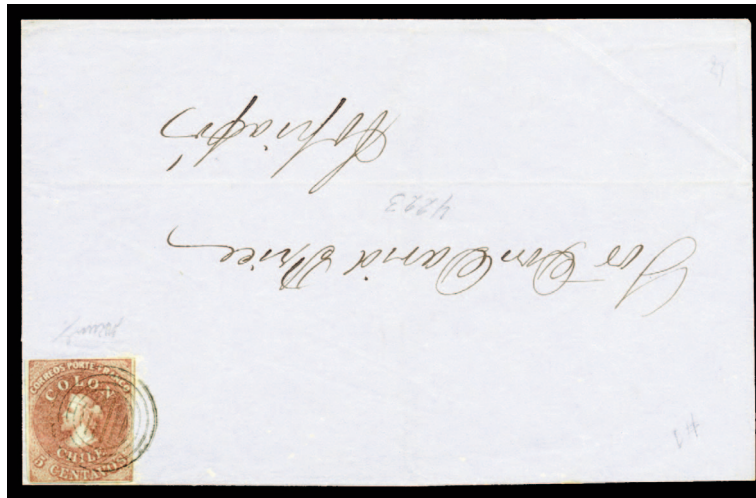 Sor Don David Price
Copiapó
4223
#1
CORREOS PORTE FRANCO
COLON
CHILE
5 CENTAVOS